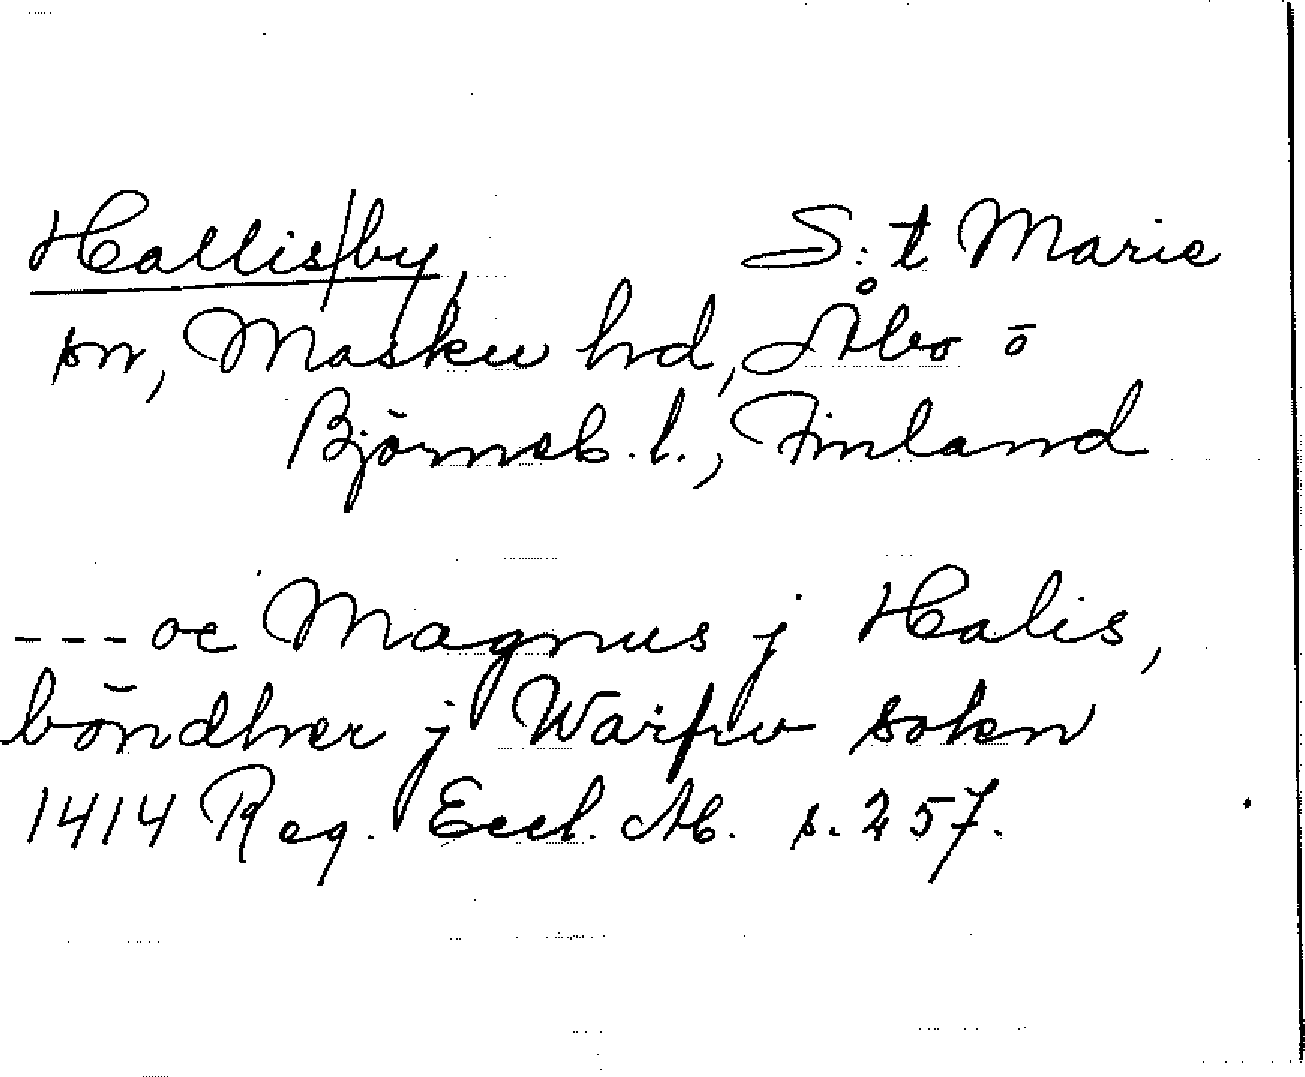 Hallis/by, S:t Marie
sn, Masku hd, Åbo o
Björneb. l., Finland
--- oc Magnus j Halis,
böndher j Warfrw sokn
1414 Reg. Eccl. Ab. s. 257.